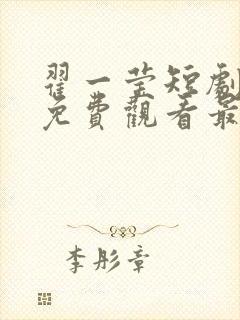 翟一莹短劇
免費觀看最
李彤章